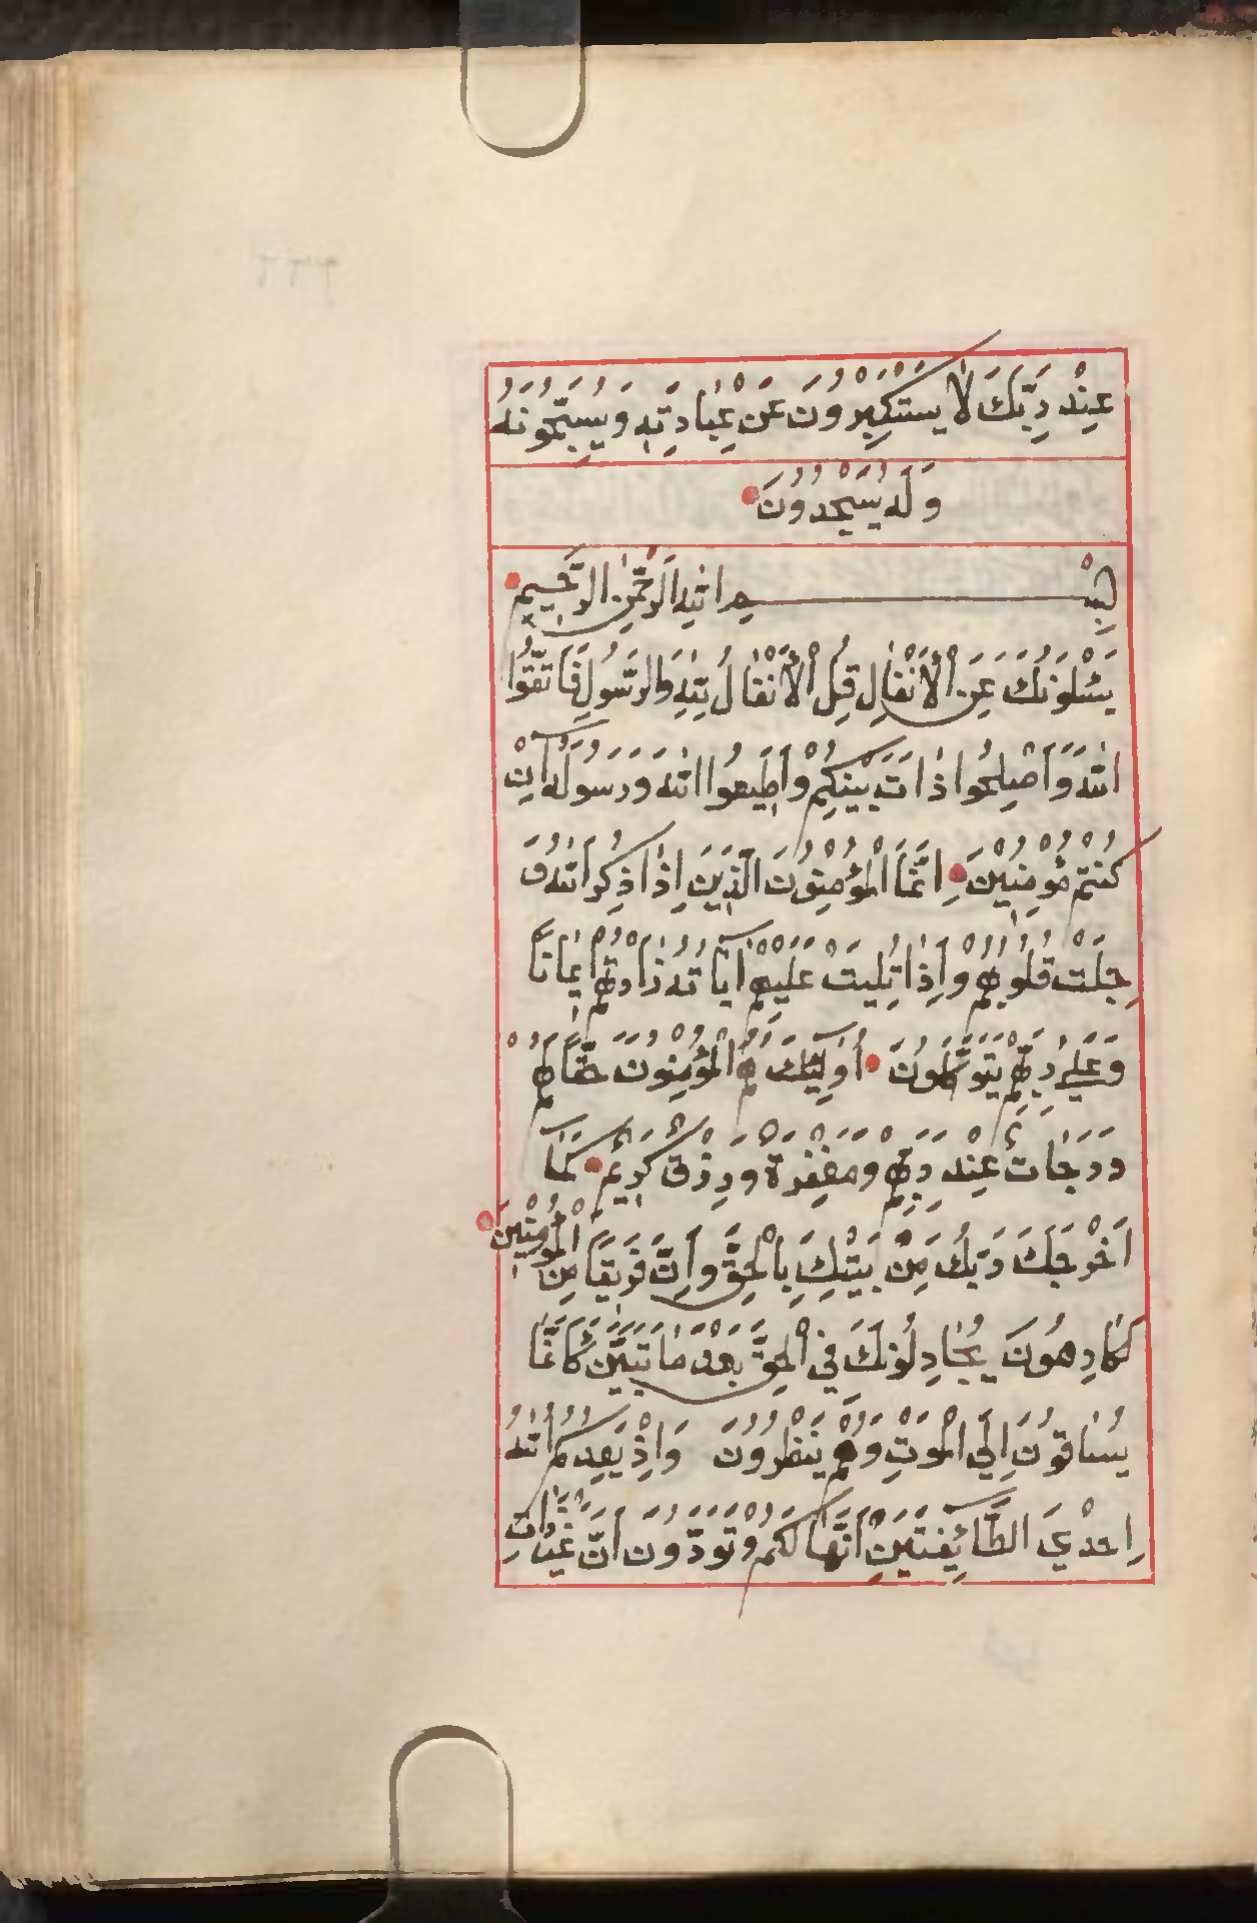 عِنْدِ رَبِّكَ لَا يَسْتَكْبِرُونَ عَنْ عِبَادَتِهِ وَيُسَبِّحُونَهُ
وَلَهُ يَسْجُدُونَ
بِسْمِ اللهِ الرَّحْمٰنِ الرَّحِيمِ
يَسْئَلُونَكَ عَنِ الْأَنْفَالِ قُلِ الْأَنْفَالُ لِلّٰهِ وَالرَّسُولِ فَاتَّقُوا
اللهَ وَأَصْلِحُوا ذَاتَ بَيْنِكُمْ وَأَطِيعُوا اللهَ وَرَسُولَهُ اِنْ
كُنْتُمْ مُؤْمِنِيْنَ اِنَّمَا الْمُؤْمِنُونَ الَّذِينَ اِذَا ذُكِرَ اللهُ وَ
جِلَتْ قُلُوبُهُمْ وَاِذَا تُلِيَتْ عَلَيْهِمْ آيَاتُهُ زَادَتْهُمْ اِيمَانًا
وَعَلَى رَبِّهِمْ يَتَوَكَّلُونَ أُولَئِكَ هُمُ الْمُؤْمِنُونَ حَقًّا لَهُمْ
دَرَجَاتٌ عِنْدَ رَبِّهِمْ وَمَغْفِرَةٌ وَرِزْقٌ كَرِيمٌ كَمَا
اَخْرَجَكَ رَبُّكَ مِنْ بَيْتِكَ بِالْحَقِّ وَاِنَّ فَرِيقًا مِنَ الْمُؤْمِنِيْنَ
لَكَارِهُونَ يُجَادِلُونَكَ فِي الْحَقِّ بَعْدَ مَا تَبَيَّنَ كَأَنَّمَا
يُسَاقُونَ اِلَى الْمَوْتِ وَهُمْ يَنْظُرُونَ وَاِذْ يَعِدُكُمُ اللهُ
اِحْدَى الطَّائِفَتَيْنِ اَنَّهَا لَكُمْ وَتَوَدُّونَ اَنَّ غَيْرَ ذَاتِ